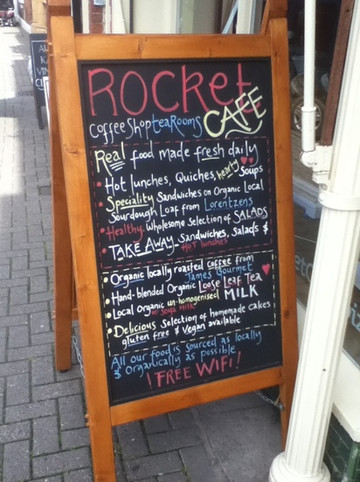 ROCKET
CAFE
Coffee Shop tea Rooms
Real food made fresh daily
• Hot lunches, Quiches, hearty Soups
• Speciality Sandwiches on Organic Local
Sourdough Loaf from Lorentzens
• Healthy, Wholesome Selection of SALADS
• TAKE AWAY Sandwiches, Salads &
Hot lunches
• Organic locally roasted coffee from
James Gourmet
• Hand-blended Organic Loose Leaf Tea
• Local Organic un-homogenised MILK
or Soya Milk
• Delicious Selection of homemade cakes
gluten free & Vegan available
All our food is Sourced as locally
& Organically as possible
! FREE WIFI !